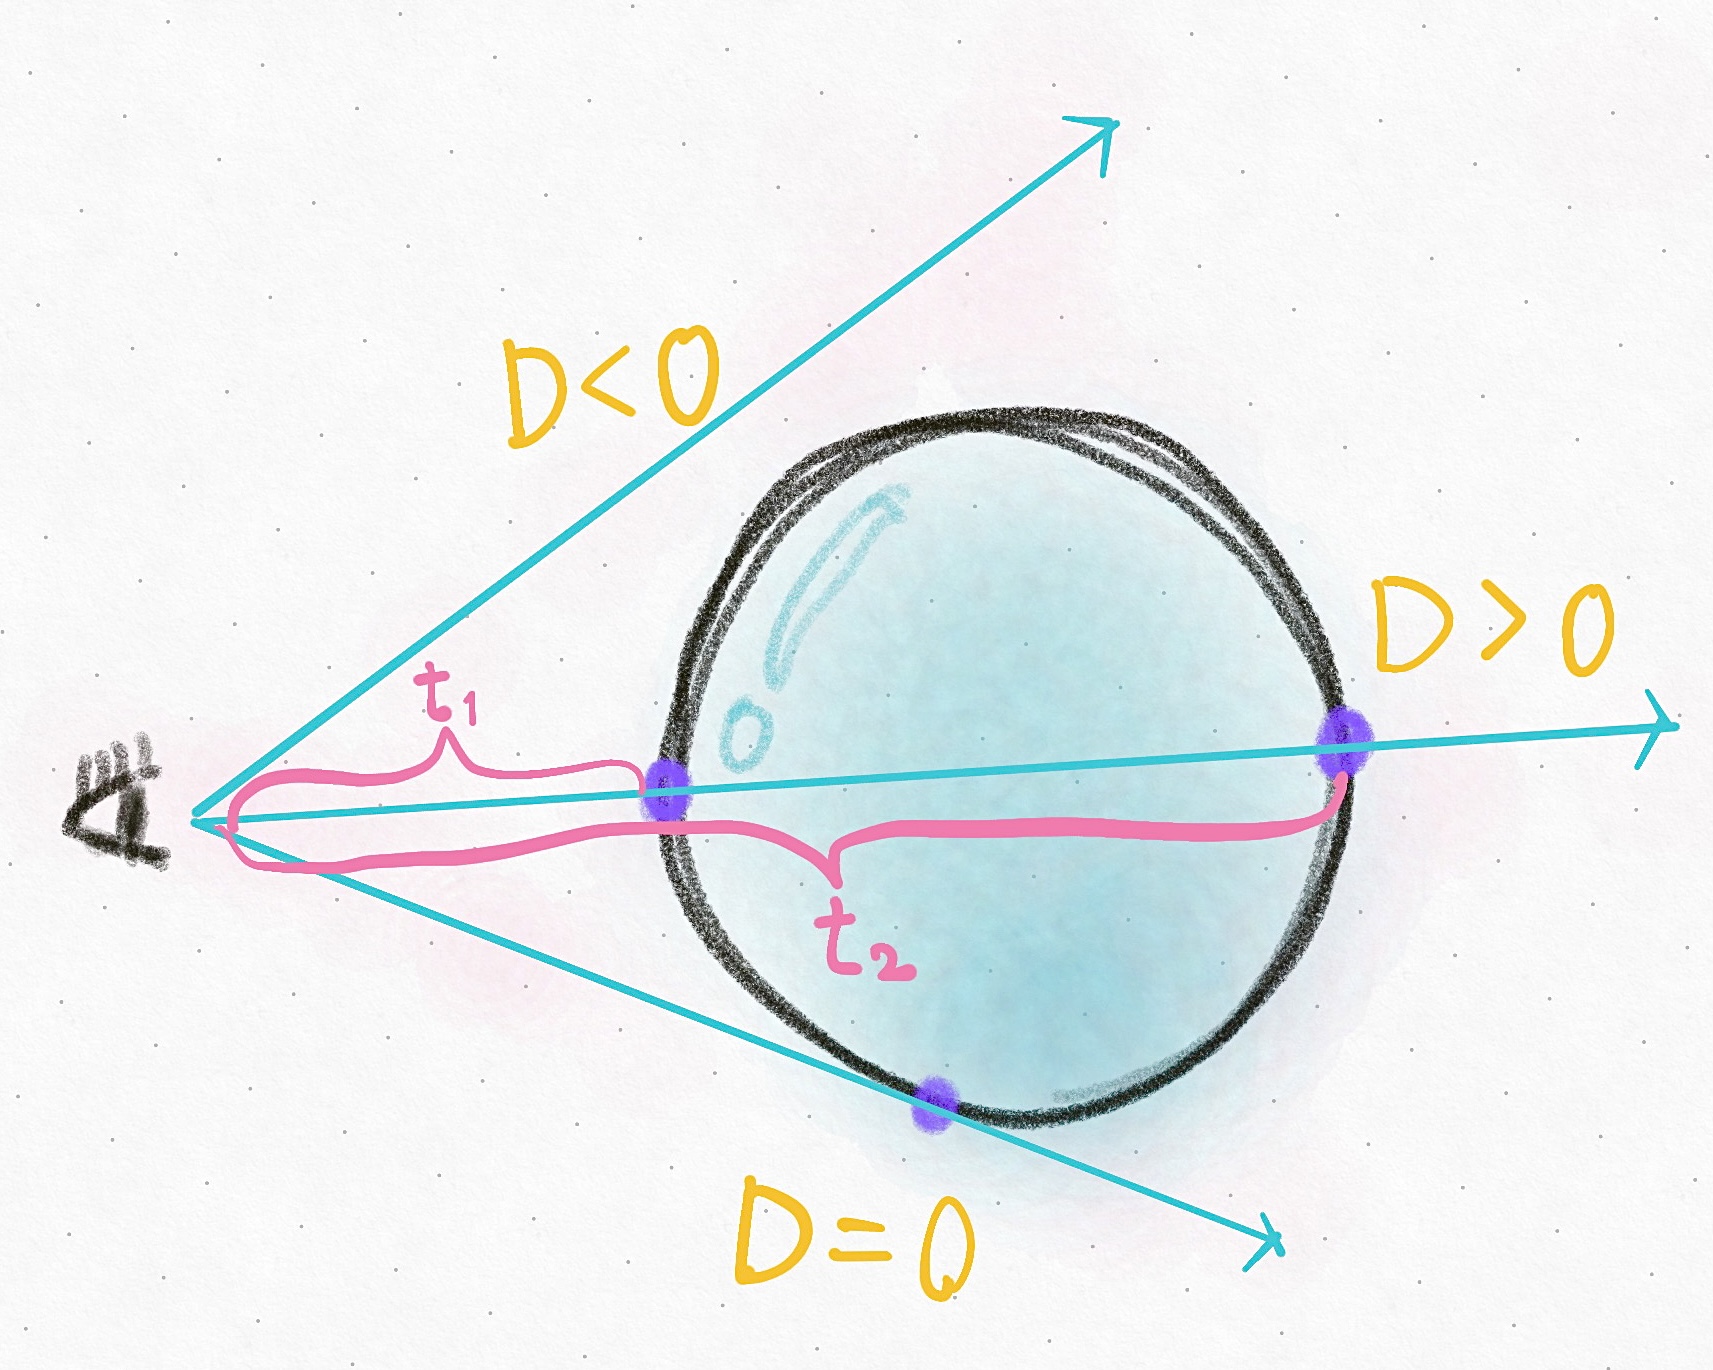 D < 0
D > 0
t₁
t₂
D = 0